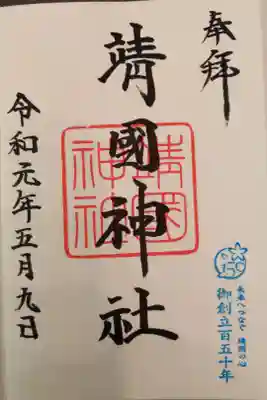 奉拝
靖國神社
靖國神社
令和元年五月九日
150
未来へつなぐ 靖國の心
御創立百五十年